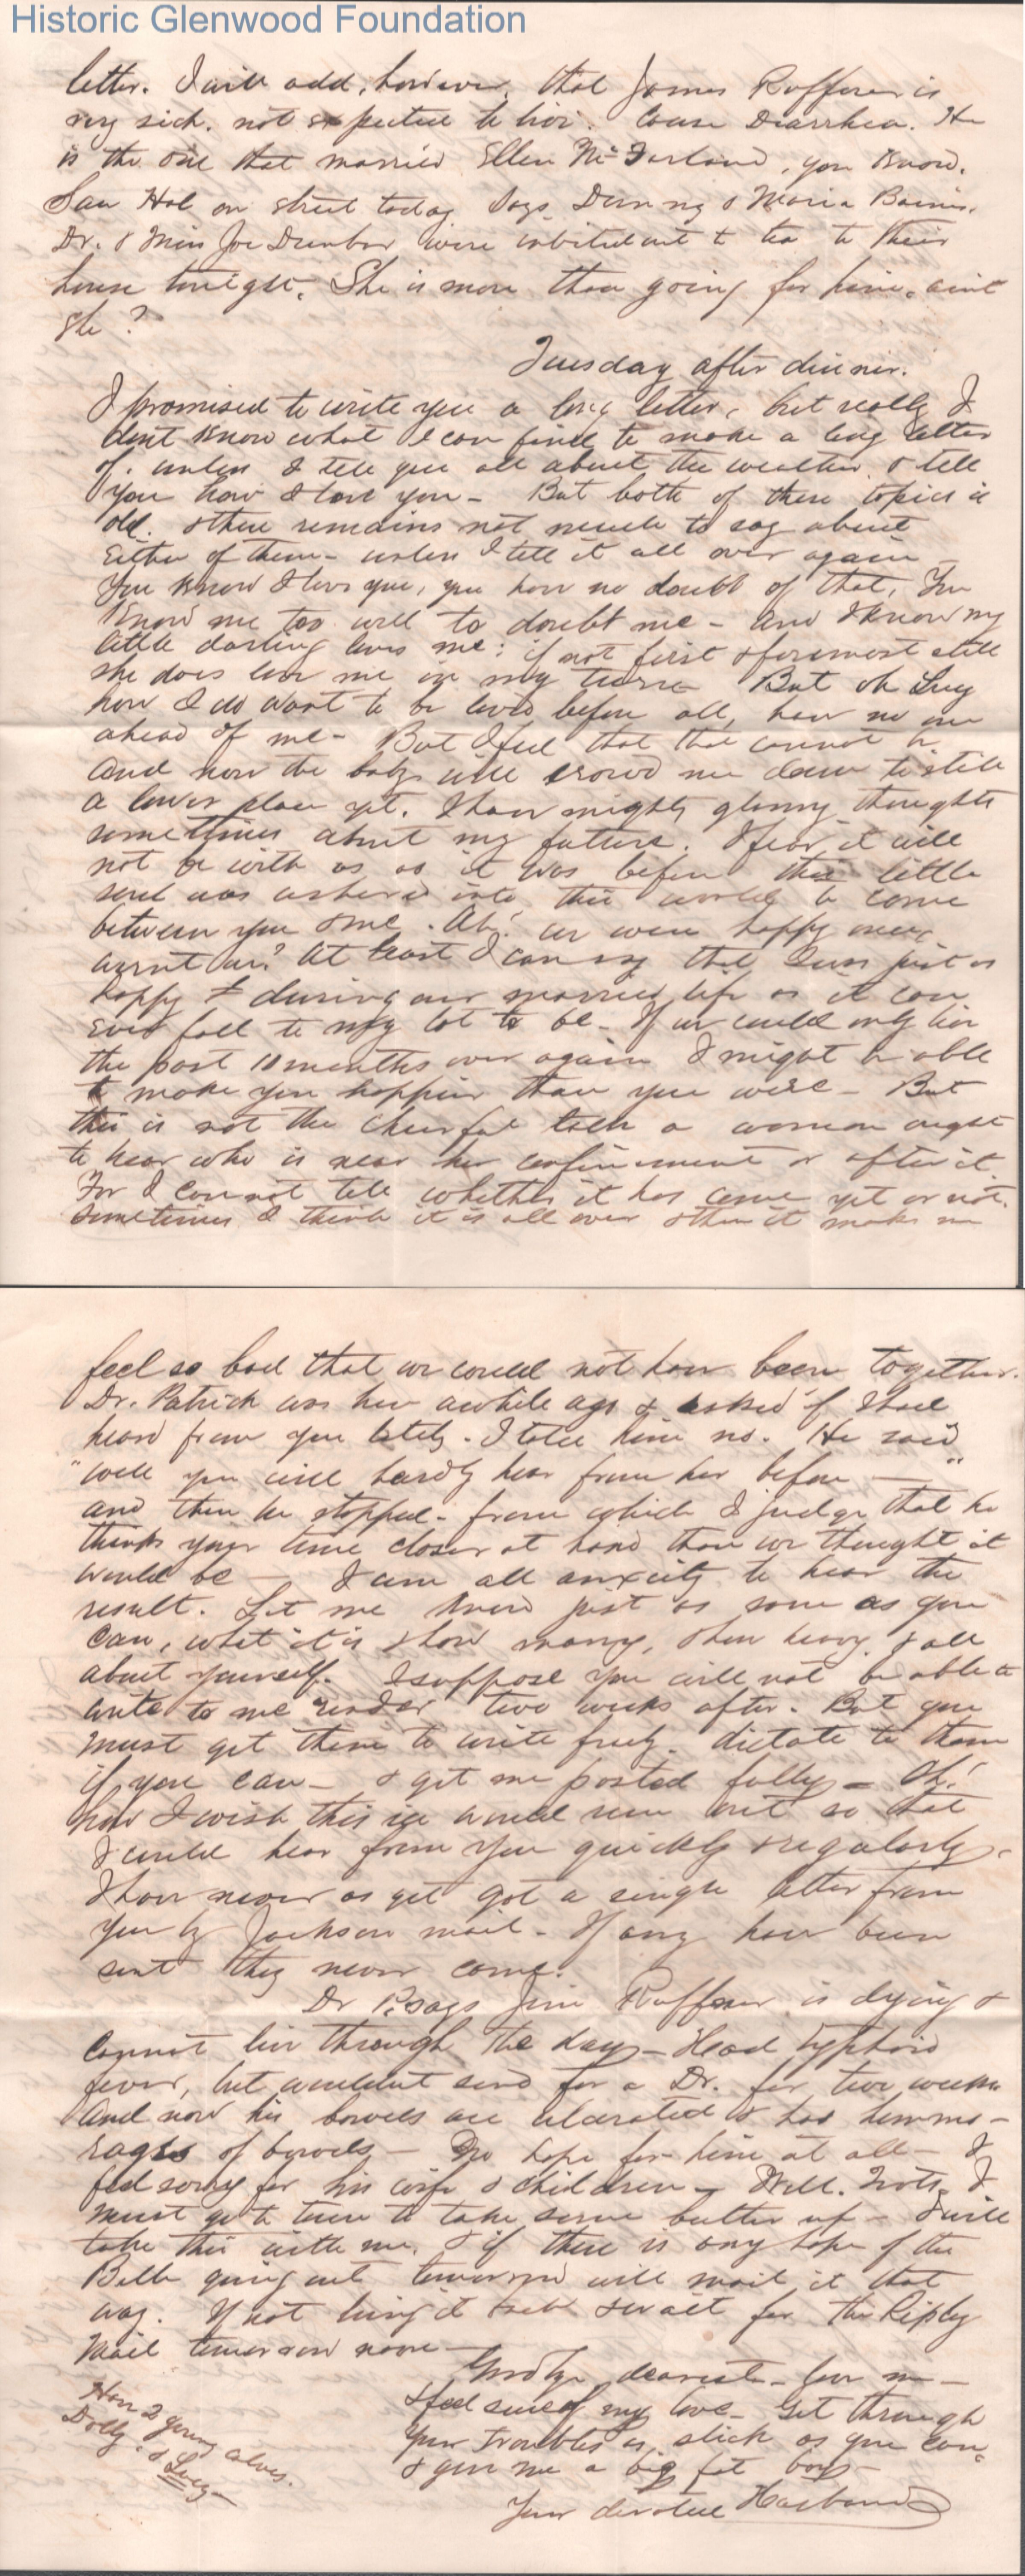 Historic Glenwood Foundation
letter. I will add, however, that James Ruffner is
very sick. not expected to live. Cause Diarrhea. He
is the one that married Ellen McFarland, you know.
Saw Hal on street today. Says Dinny & Maria Baines,
Dr. & Miss Joe Dunbar were invited out to tea to their
house tonight. She is more than going for him, aint
she?
Tuesday after dinner.
I promised to write you a long letter, but really I
dont know what I can find to make a long letter
of. unless I tell you all about the weather & tell
you how I love you - But both of these topics is
old. & there remains not much to say about
either of them - unless I tell it all over again -
You know I love you, you have no doubt of that, You
know me too well to doubt me - And I know my
little darling loves me: if not first & foremost still
she does love me in my turn - But oh Lucy
how I do want to be loved before all, have no one
ahead of me - But I feel that that cannot be
and now the baby will crowd me down to still
a lower place yet. I have mighty gloomy thoughts
sometimes about my future. I fear it will
not be with us as it was before this little
soul was ushered into this world to come
between you & me. Ah! we were happy once,
wernt we? At least I can say that I was just as
happy during our married life as it can
ever fall to my lot to be - If we could only live
the past 10 months over again I might be able
to make you happier than you were - But
this is not the cheerful talk a woman ought
to hear who is near her confinement or after it.
For I cannot tell whether it has come yet or not.
Sometimes I think it is all over & then it makes me
feel so bad that we could not have been together.
Dr. Patrick was here awhile ago & asked if I had
heard from you lately. I told him no. He said
"well you will hardly hear from her before — "
and then he stopped - from which I judge that he
thinks your time closer at hand than we thought it
would be — I am all anxiety to hear the
result. Let me know just as soon as you
can, what it is & how many, & how heavy, & all
about yourself. I suppose you will not be able to
write to me under two weeks after. But you
must get them to write freely. dictate to them
if you can - & get me posted fully - Oh!
how I wish this ice would run out so that
I could hear from you quickly & regularly.
I have never as yet got a single letter from
you by Jackson mail - If any have been
sent they never come.
Dr P. says Jim Ruffner is dying &
cannot live through the day - Head typhoid
fever, but wouldnt send for a Dr. for two weeks
And now his bowels are ulcerated & has hemmo-
rages of bowels - No hope for him at all - I
feel sorry for his wife & children - Well. I
must go to town to take some butter up - I will
take this with me, & if there is any hope of the
Belle going out tomorrow will mail it that
way. If not bring it back & wait for the Riply
mail tomorrow noon -
Goodbye dearest - love me -
& feel sure of my love - Get through
your troubles as slick as you can,
& give me a big fat boy -
Your devoted Husband
Have 2 young calves.
Dolly & Lucy -